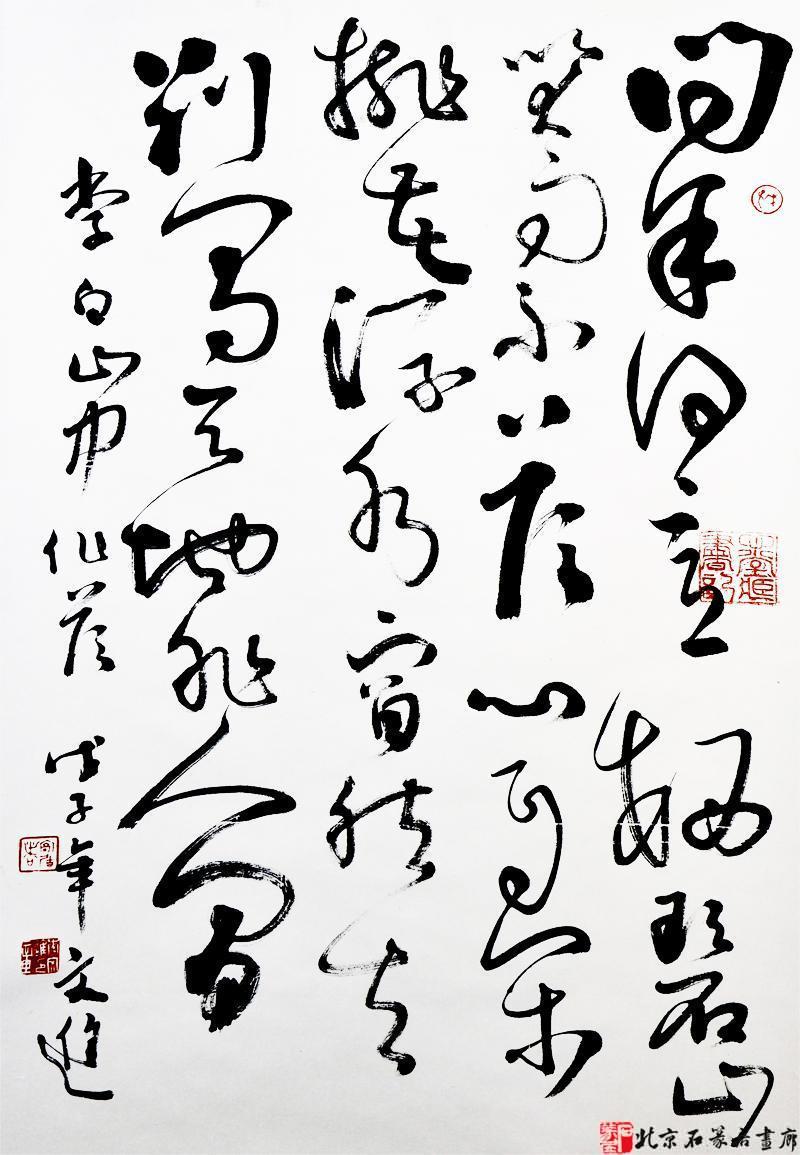 問余何意栖碧山
笑而不答心自閑
桃花流水窅然去
別有天地非人間
李白山中作答 戊子年 文進
北京石篆 畫廊